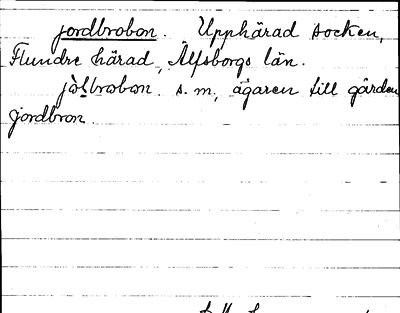 jordbrobon. Upphärad socken,
Flundre härad, Älfsborgs län.
jòl̀brobon. s. m., ägaren till gården
Jordbron.